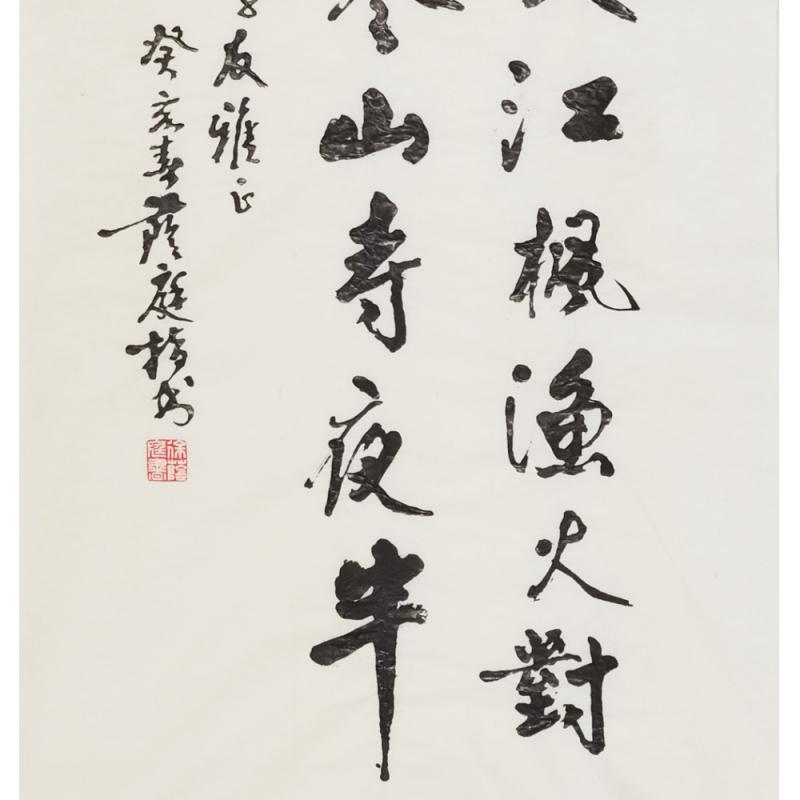 江楓漁火對
寒山寺夜半
友雅正
癸亥春蔭庭指書